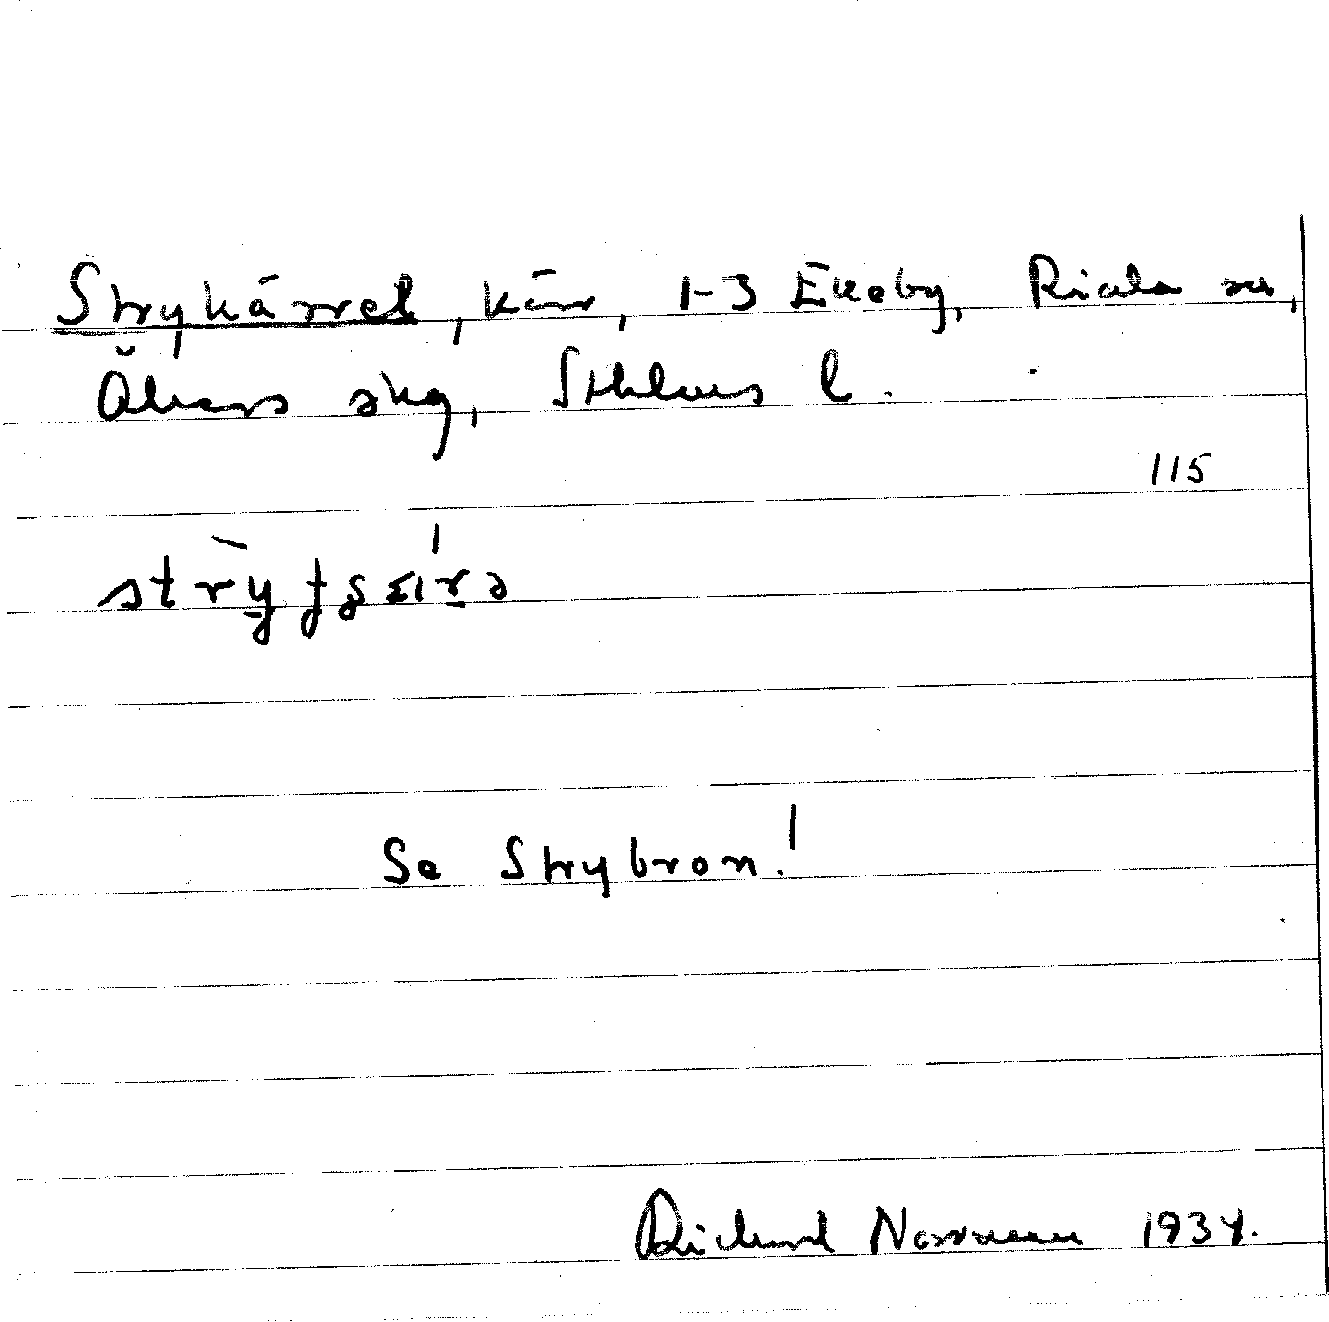 Strykärret, kärr, 1-3 Ekeby, Riala sn,
Åkers skg, Sthlms l.
115
Se Strybron!
Richard Norrman 1934.